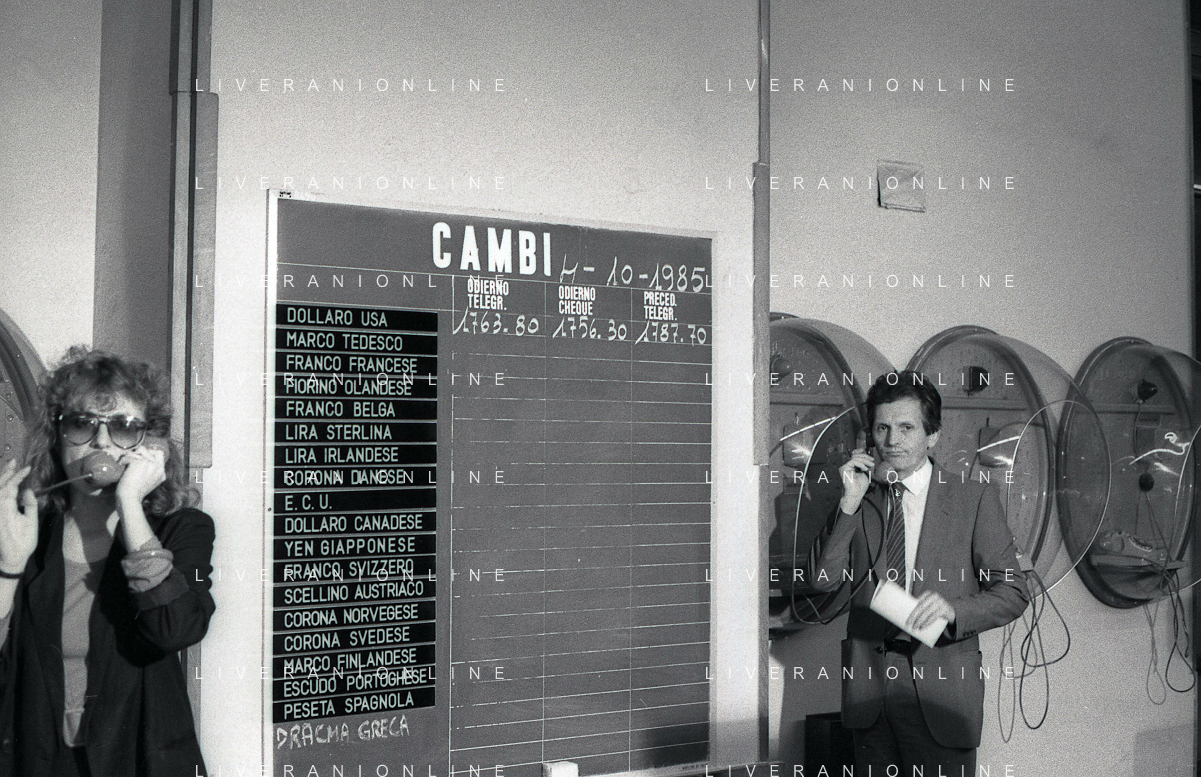 LIVERANIONLINE LIVERANIONLINE
LIVERANIONLINE LIVERANIONLINE
CAMBI 4-10-1985
LIVERANIONLINE LIVERANIONLINE
ODIERNO TELEGR. ODIERNO CHEQUE PRECED. TELEGR.
DOLLARO USA 1763.80 1756.30 1787.70
MARCO TEDESCO
FRANCO FRANCESE
LIVERANIONLINE LIVERANIONLINE
FIORINO OLANDESE
FRANCO BELGA
LIRA STERLINA
LIRA IRLANDESE
CORONA DANESE
LIVERANIONLINE LIVERANIONLINE
E.C.U.
DOLLARO CANADESE
YEN GIAPPONESE
FRANCO SVIZZERO
LIVERANIONLINE LIVERANIONLINE
SCELLINO AUSTRIACO
CORONA NORVEGESE
CORONA SVEDESE
MARCO FINLANDESE
LIVERANIONLINE LIVERANIONLINE
ESCUDO PORTOGHESE
PESETA SPAGNOLA
DRACMA GRECA
LIVERANIONLINE LIVERANIONLINE